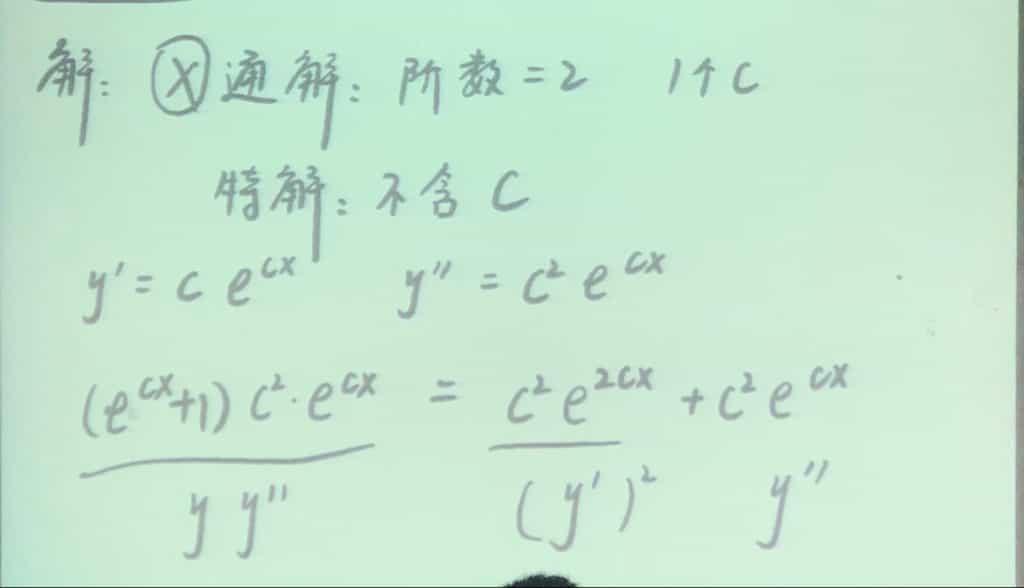 解: ⓧ通解: 阶数=2 1个C
特解: 不含C
y' = c e^{cx} y'' = c² e^{cx}
(e^{cx}+1) c²·e^{cx} = c² e^{2cx} + c² e^{cx}
y y'' (y')² y''